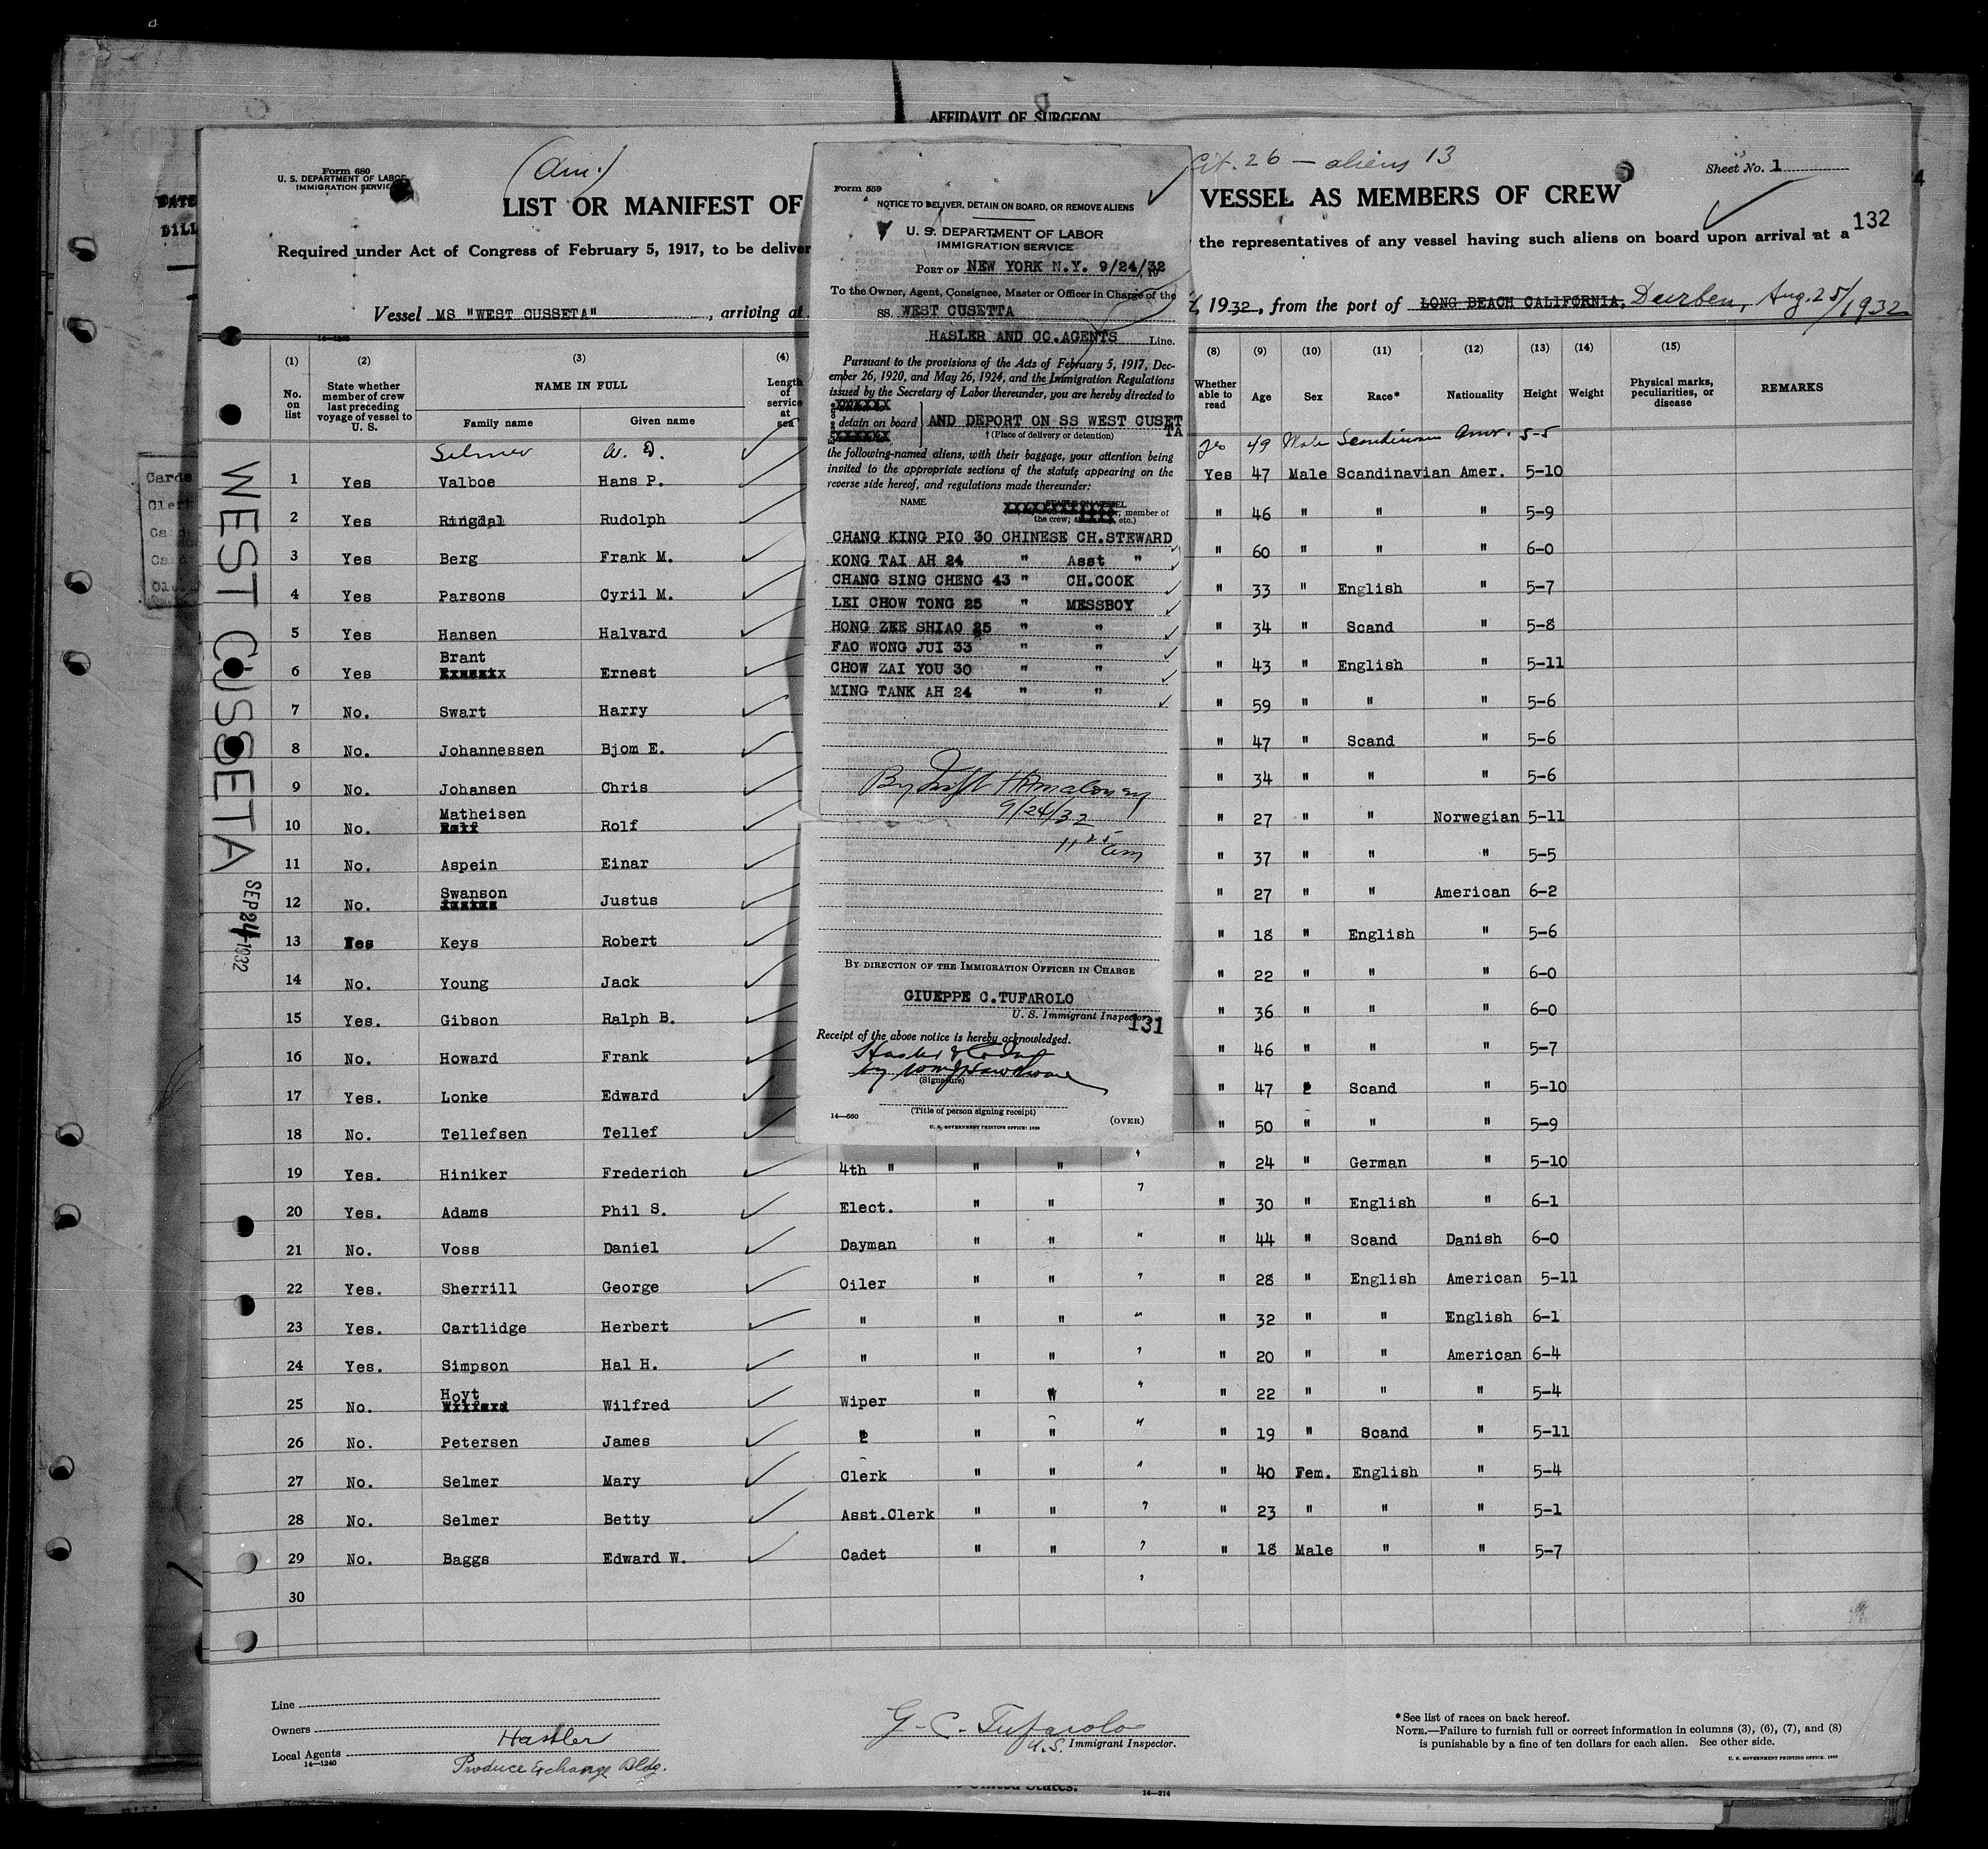 AFFIDAVIT OF SURGEON
(Am.)
Cit. 26 — aliens 13
Form 680
U. S. DEPARTMENT OF LABOR
IMMIGRATION SERVICE
Sheet No. 1
LIST OR MANIFEST OF
VESSEL AS MEMBERS OF CREW
132
Required under Act of Congress of February 5, 1917, to be deliver
the representatives of any vessel having such aliens on board upon arrival at a
Vessel MS "WEST CUSSETA", arriving at
1932, from the port of LONG BEACH CALIFORNIA. Durben, Aug. 25/1932
WEST CUSSETA
SEP 24 1932
Form 559
NOTICE TO DELIVER, DETAIN ON BOARD, OR REMOVE ALIENS
U. S. DEPARTMENT OF LABOR
IMMIGRATION SERVICE
PORT OF NEW YORK N.Y. 9/24/32
To the Owner, Agent, Consignee, Master or Officer in Charge of the
SS. WEST CUSETTA
HASLER AND CO.AGENTS Line.
Pursuant to the provisions of the Acts of February 5, 1917, Dec-
ember 26, 1920, and May 26, 1924, and the Immigration Regulations
issued by the Secretary of Labor thereunder, you are hereby directed to
detain on board AND DEPORT ON SS WEST CUSET
TA
† (Place of delivery or detention)
the following-named aliens, with their baggage, your attention being
invited to the appropriate sections of the statute appearing on the
reverse side hereof, and regulations made thereunder:
NAME
member of
the crew; etc.)
CHANG KING PIO 30 CHINESE CH.STEWARD
KONG TAI AH 24 " Asst "
CHANG SING CHENG 43 " CH.COOK
LEI CHOW TONG 25 " MESSBOY
HONG ZEE SHIAO 25 " "
FAO WONG JUI 33 " "
CHOW ZAI YOU 30 " "
MING TANK AH 24 " "
9/24/32
11 25 am
BY DIRECTION OF THE IMMIGRATION OFFICER IN CHARGE
GIUEPPE C.TUFAROLO
U. S. Immigrant Inspector
131
Receipt of the above notice is hereby acknowledged.
(Signature)
(Title of person signing receipt)
14—560
U. S. GOVERNMENT PRINTING OFFICE: 1929
(OVER)
(1) (2) (3) (4) (8) (9) (10) (11) (12) (13) (14) (15)
No. on list
State whether member of crew last preceding voyage of vessel to U. S.
NAME IN FULL
Family name Given name
Length of service at sea
Whether able to read
Age Sex Race* Nationality Height Weight
Physical marks, peculiarities, or disease
REMARKS
Selmer W. D. yes 49 Male Scandinavian Amer. 5-5
1 Yes Valboe Hans P. Yes 47 Male Scandinavian Amer. 5-10
2 Yes Ringdal Rudolph " 46 " " " 5-9
3 Yes Berg Frank M. " 60 " " " 6-0
4 Yes Parsons Cyril M. " 33 " English " 5-7
5 Yes Hansen Halvard " 34 " Scand " 5-8
6 Yes Brant Ernest " 43 " English " 5-11
7 No. Swart Harry " 59 " " " 5-6
8 No. Johannessen Bjom E. " 47 " Scand " 5-6
9 No. Johansen Chris " 34 " " " 5-6
10 No. Matheisen Rolf " 27 " " Norwegian 5-11
11 No. Aspein Einar " 37 " " " 5-5
12 No. Swanson Justus " 27 " " American 6-2
13 Yes Keys Robert " 18 " English " 5-6
14 No. Young Jack " 22 " " " 6-0
15 Yes. Gibson Ralph B. " 36 " " " 6-0
16 No. Howard Frank " 46 " " " 5-7
17 Yes. Lonke Edward " 47 " Scand " 5-10
18 No. Tellefsen Tellef " 50 " " " 5-9
19 Yes. Hiniker Frederich 4th " " " " " 24 " German " 5-10
20 Yes. Adams Phil S. Elect. " " " " 30 " English " 6-1
21 No. Voss Daniel Dayman " " " " 44 " Scand Danish 6-0
22 Yes. Sherrill George Oiler " " " " 28 " English American 5-11
23 Yes. Cartlidge Herbert " " " " " 32 " " English 6-1
24 Yes. Simpson Hal H. " " " " " 20 " " American 6-4
25 No. Hoyt Wilfred Wiper " " " " 22 " " " 5-4
26 No. Petersen James " " " " " 19 " Scand " 5-11
27 No. Selmer Mary Clerk " " " " 40 Fem. English " 5-4
28 No. Selmer Betty Asst.Clerk " " " " 23 " " " 5-1
29 No. Baggs Edward W. Cadet " " " " 18 Male " " 5-7
30
Line
Owners
Local Agents Hassler
14—1240
Produce Exchange Bldg.
G. C. Tufarolo
U.S. Immigrant Inspector.
*See list of races on back hereof.
NOTE.—Failure to furnish full or correct information in columns (3), (6), (7), and (8)
is punishable by a fine of ten dollars for each alien. See other side.
U. S. GOVERNMENT PRINTING OFFICE: 1929
United States.
14—214